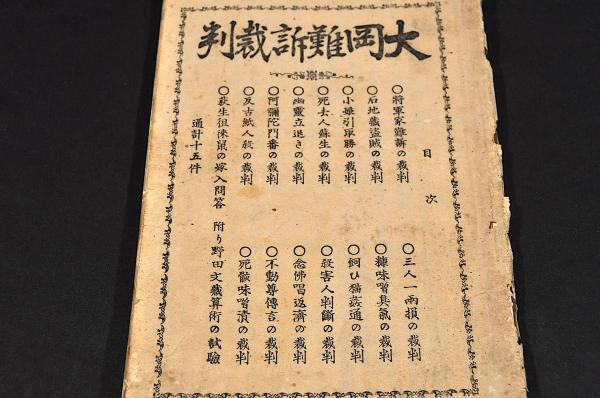 大岡難訴裁判
目次
〇將軍家難訴の裁判
〇石地藏盗賊の裁判
〇小娘引取勝の裁判
〇死去人蘇生の裁判
〇幽靈立退きの裁判
〇阿彌陀門番の裁判
〇反古紙人殺の裁判
〇荻生徂徠鼠の嫁入問答 附り野田文藏算術の試驗
通計十五件
〇三人一兩損の裁判
〇糠味噌臭氣の裁判
〇飼ひ猫姦通の裁判
〇殺害人判斷の裁判
〇念佛唱返濟の裁判
〇不動尊傳言の裁判
〇死骸味噌漬の裁判